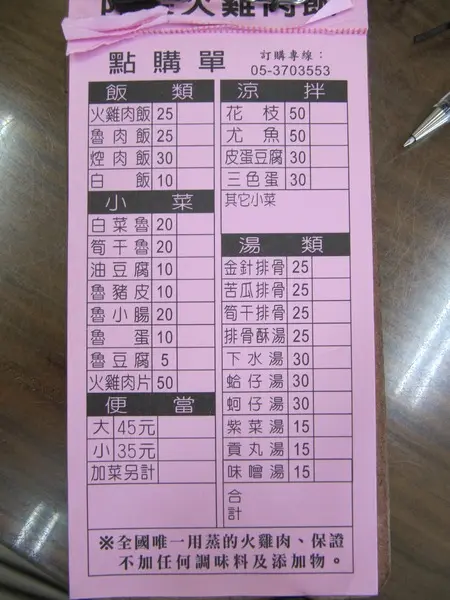 火雞肉飯
點購單
訂購專線：
05-3703553
飯類
火雞肉飯 25
魯肉飯 25
焢肉飯 30
白飯 10
小菜
白菜魯 20
筍干魯 20
油豆腐 10
魯豬皮 10
魯小腸 20
魯蛋 10
魯豆腐 5
火雞肉片 50
便當
大 45元
小 35元
加菜另計
涼拌
花枝 50
尤魚 50
皮蛋豆腐 30
三色蛋 30
其它小菜
湯類
金針排骨 25
苦瓜排骨 25
筍干排骨 25
排骨酥湯 25
下水湯 30
蛤仔湯 30
蚵仔湯 30
紫菜湯 15
貢丸湯 15
味噌湯 15
合計
※全國唯一用蒸的火雞肉、保證
不加任何調味料及添加物。